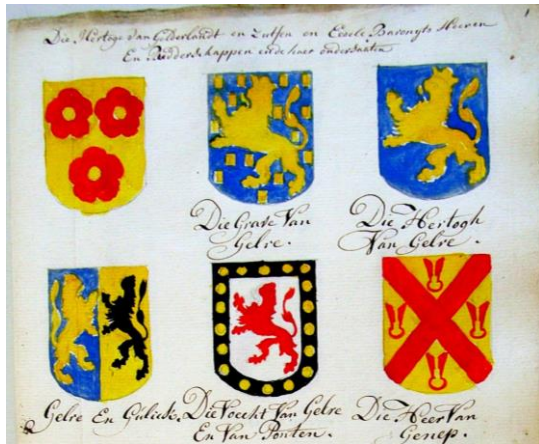 Die Hertoge Van Gelderlandt en Zutfen en Eedele Barongts Heeren
En Ridderschappen ende haer ondersaaten
Die Grave Van
Gelre.
Die Hertogh
Van Gelre.
Gelre En Gulick.
Die Voecht Van Gelre
En Van Ponten.
Die Heer Van
Genep.